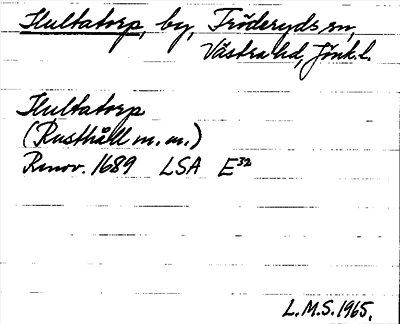 Hultatorp, by, Fröderyds sn,
Västra hd, Jönk.l.
Hultatorp
(Rusthåll m.m.)
Renov. 1689 LSA E³²
L.M.S. 1965.